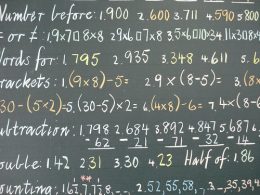 Number before: 1.900 2.600 3.711 4.590 5.800
= or ≠: 1.9x7
Words for: 1.795 2.935 3.348 4.611 5.
brackets: 1.(9×8)-5= 2.9×(8-5)= 3.(6
30-(5×2)= 5.(30-5)×2= 6.(4×8)-6= 7.4×(8-6
ubtraction: 1.798 2.684 3.892 4.847 5.687 6.
-62 -21 -71 -32 -14
ouble: 1.42 2.31 3.30 4.23 Half of: 1.86
ounting: 2.52,55,58, 3. 35,39,4